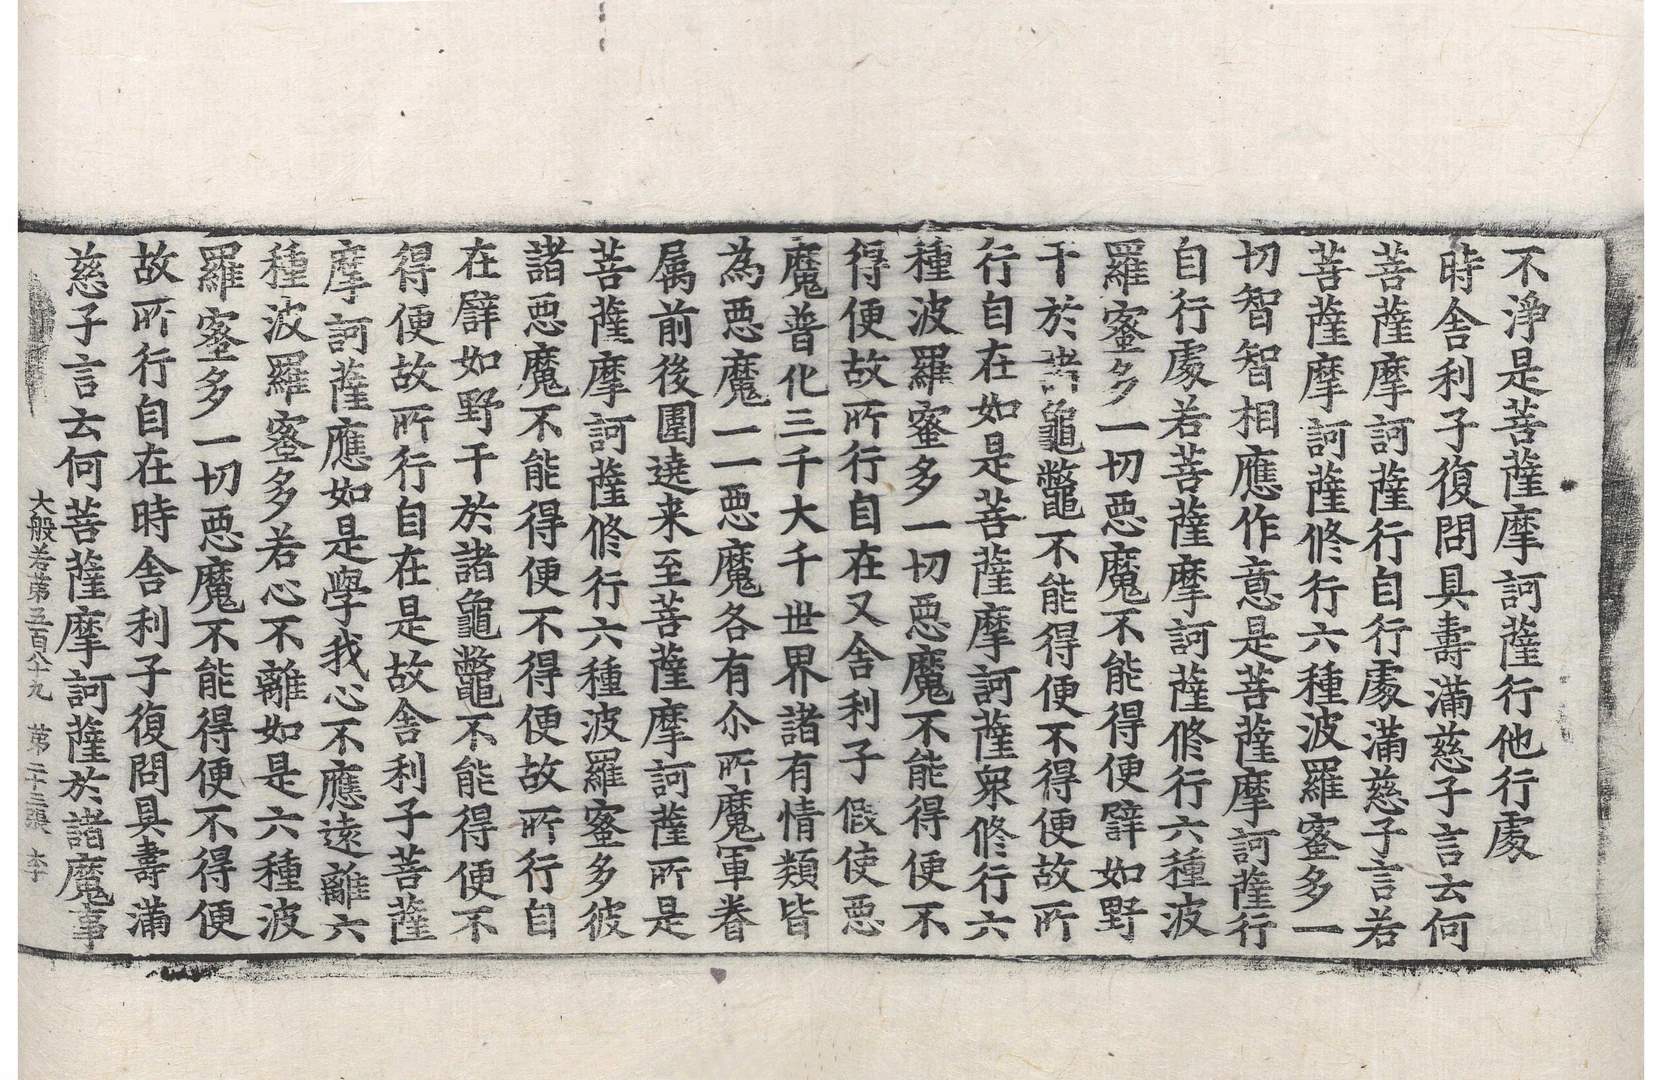 不淨是菩薩摩訶薩行他行處
時舎利子復問具壽滿慈子言云何
菩薩摩訶薩行自行處滿慈子言若
菩薩摩訶薩修行六種波羅蜜多一
切智智相應作意是菩薩摩訶薩行
自行處若菩薩摩訶薩修行六種波
羅蜜多一切惡魔不能得便譬如野
干於諸龜鼈不能得便不得便故所
行自在如是菩薩摩訶薩衆修行六
種波羅蜜多一切惡魔不能得便不
得便故所行自在又舎利子假使惡
魔普化三千大千世界諸有情類皆
為惡魔一一惡魔各有尒所魔軍眷
属前後圍遶来至菩薩摩訶薩所是
菩薩摩訶薩修行六種波羅蜜多彼
諸惡魔不能得便不得便故所行自
在譬如野干於諸龜鼈不能得便不
得便故所行自在是故舎利子菩薩
摩訶薩應如是學我心不應遠離六
種波羅蜜多若心不離如是六種波
羅蜜多一切惡魔不能得便不得便
故所行自在時舎利子復問具壽滿
慈子言云何菩薩摩訶薩於諸魔事
大般若第五百八十九　第二十三張　李